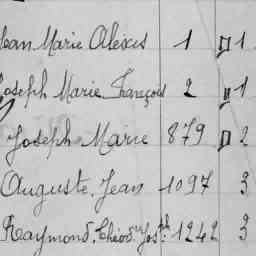 Jean Marie Alexis 1 " 1
Joseph Marie François 2 " 1
Joseph Marie 879 " 2
Auguste, Jean 1097 3
Raymond, Théod. Jos. 1242 3